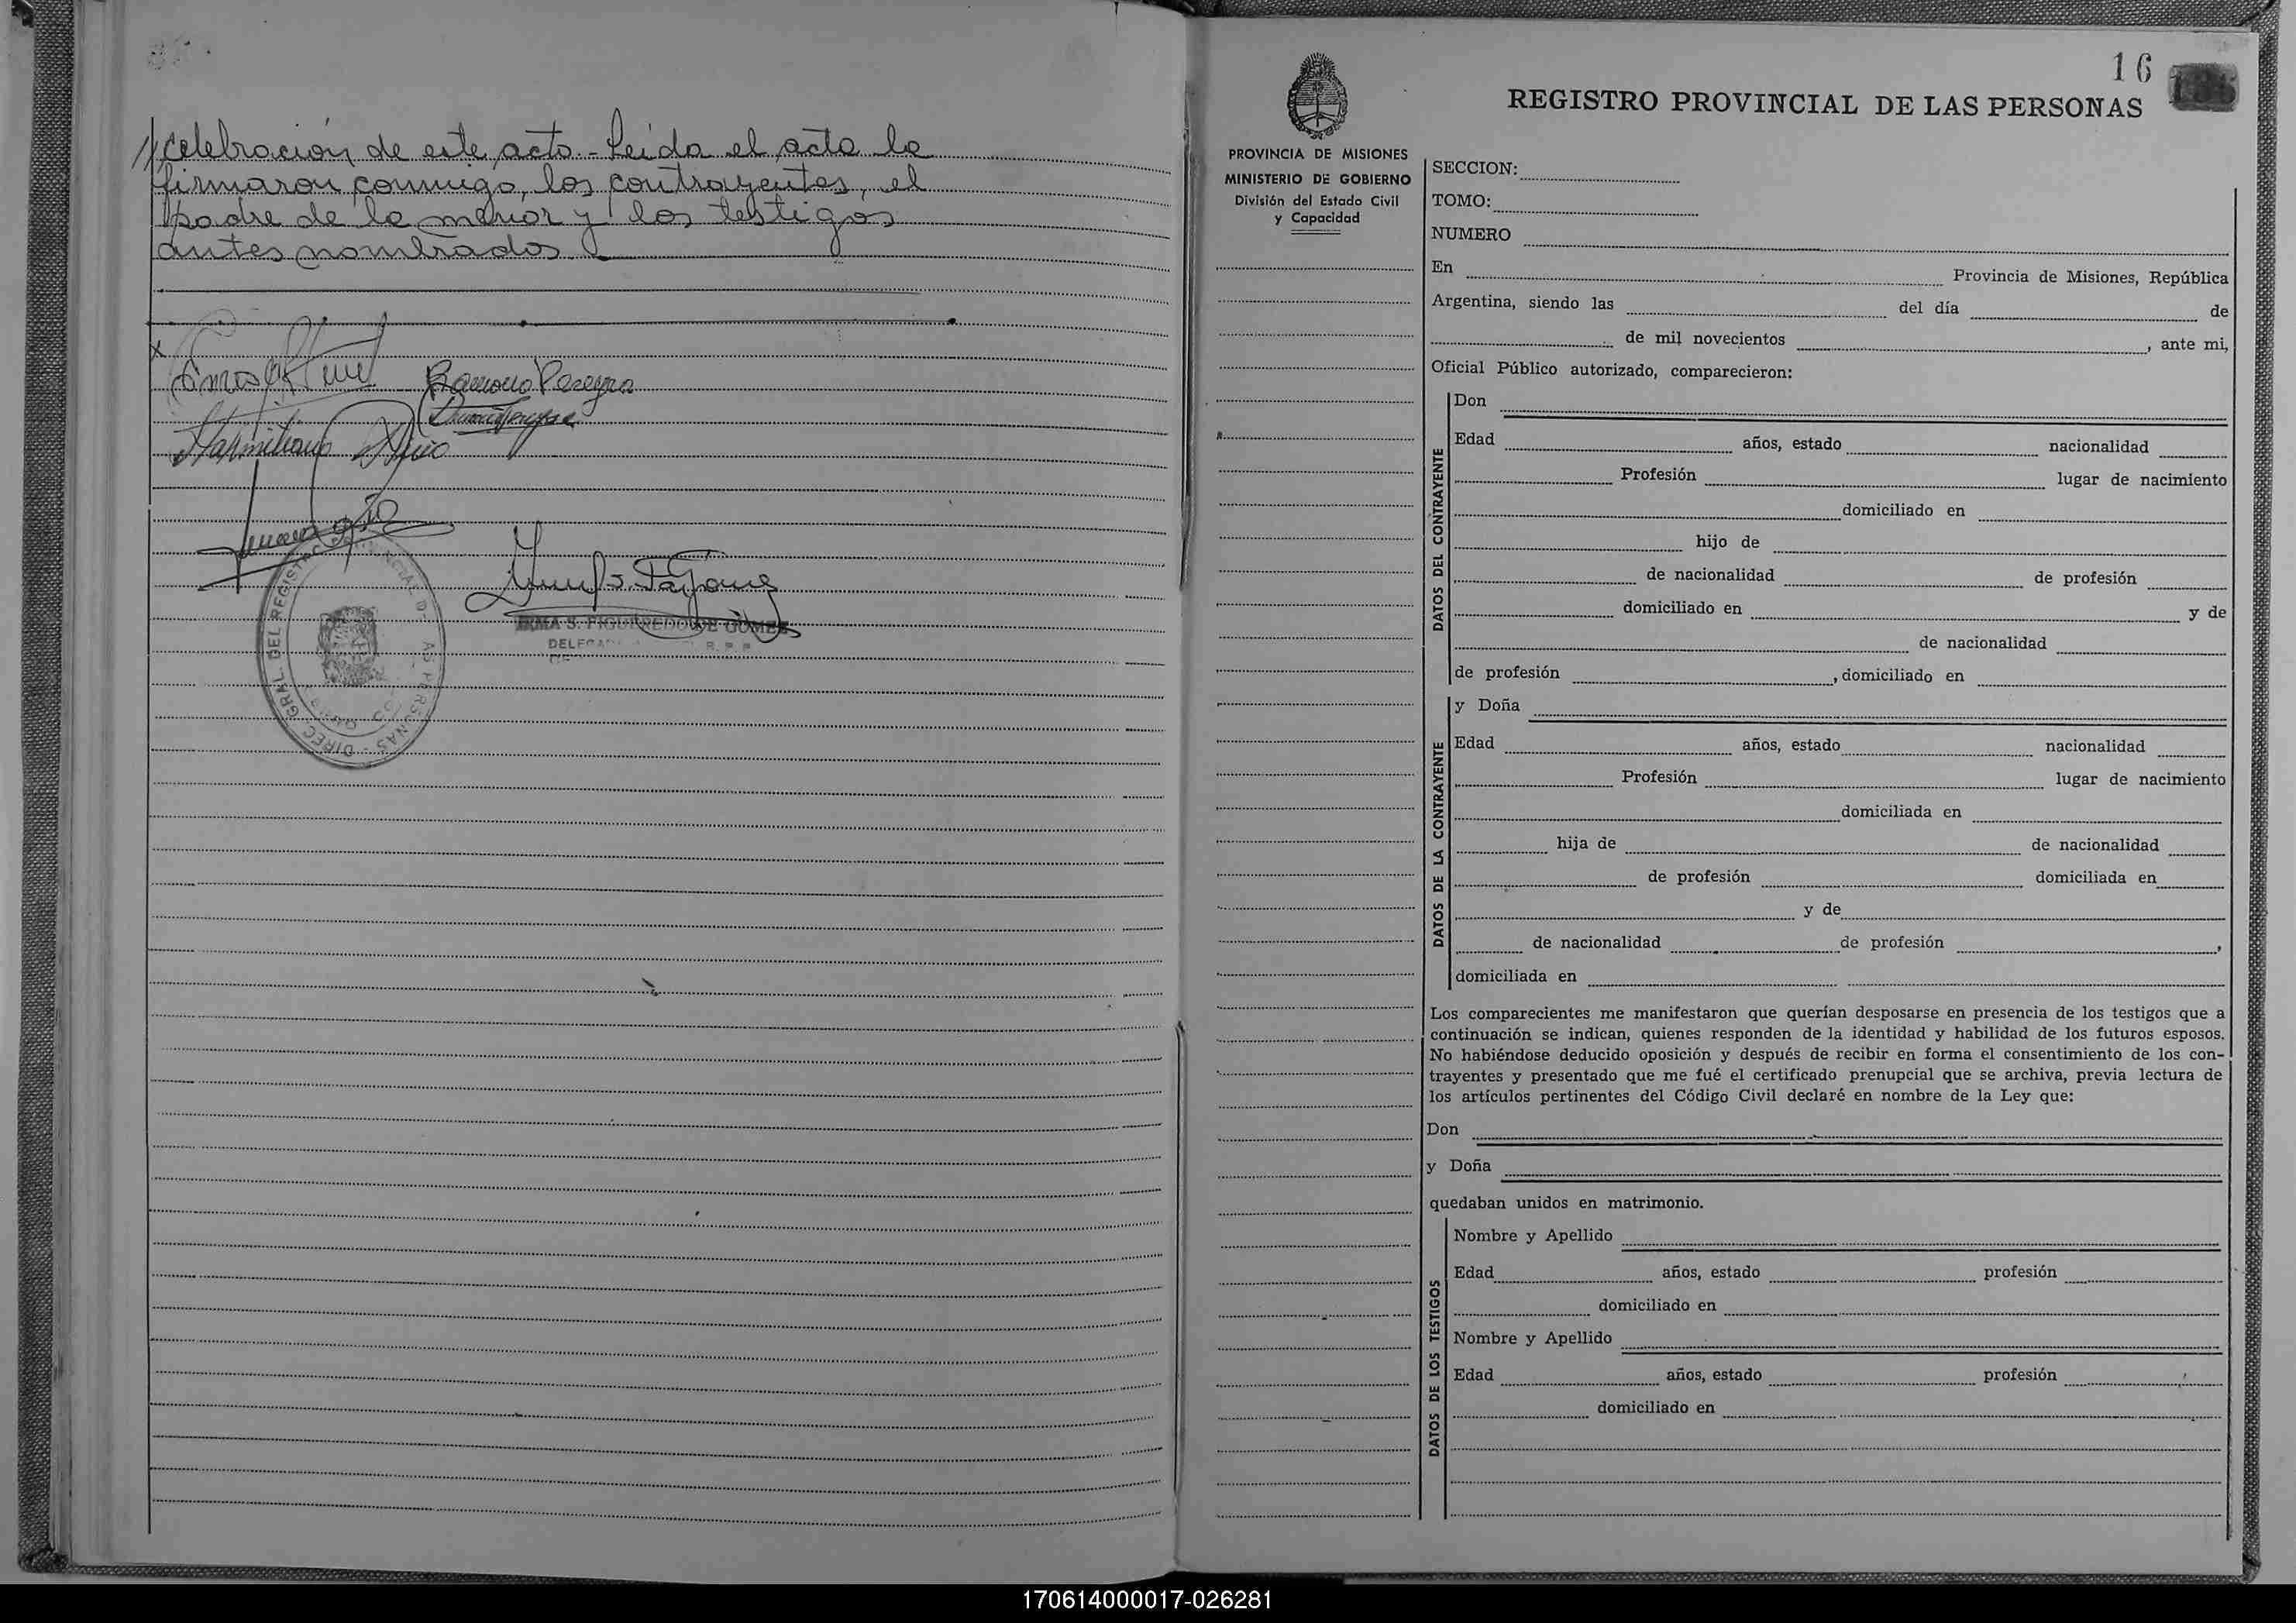 // celebración de este acto.- Leida el acta la
firmaron conmigo, los contrayentes, el
padre de la menor y los testigos
antes nombrados
Ramona Pereyra
Maximiliano
IRMA S. FIGUEREDO DE GOMEZ
DELEGADA R. P. P.
DIREC. GRAL. DEL REGISTRO PROVINCIAL DE LAS PERSONAS
16
REGISTRO PROVINCIAL DE LAS PERSONAS
PROVINCIA DE MISIONES
MINISTERIO DE GOBIERNO
División del Estado Civil
y Capacidad
SECCION:
TOMO:
NUMERO
En Provincia de Misiones, República
Argentina, siendo las del día de
de mil novecientos , ante mi,
Oficial Público autorizado, comparecieron:
DATOS DEL CONTRAYENTE
Don
Edad años, estado nacionalidad
Profesión lugar de nacimiento
domiciliado en
hijo de
de nacionalidad de profesión
domiciliado en y de
de nacionalidad
de profesión , domiciliado en
DATOS DE LA CONTRAYENTE
y Doña
Edad años, estado nacionalidad
Profesión lugar de nacimiento
domiciliada en
hija de de nacionalidad
de profesión domiciliada en
y de
de nacionalidad de profesión ,
domiciliada en
Los comparecientes me manifestaron que querían desposarse en presencia de los testigos que a
continuación se indican, quienes responden de la identidad y habilidad de los futuros esposos.
No habiéndose deducido oposición y después de recibir en forma el consentimiento de los con-
trayentes y presentado que me fué el certificado prenupcial que se archiva, previa lectura de
los artículos pertinentes del Código Civil declaré en nombre de la Ley que:
Don
y Doña
quedaban unidos en matrimonio.
DATOS DE LOS TESTIGOS
Nombre y Apellido
Edad años, estado profesión
domiciliado en
Nombre y Apellido
Edad años, estado profesión
domiciliado en
170614000017-026281